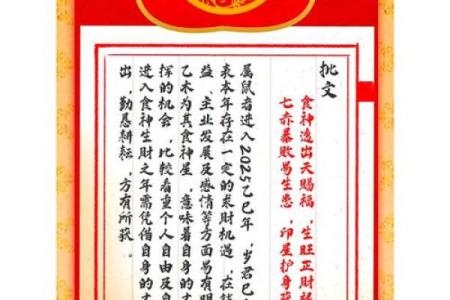 批文
食神透出天赐福，生旺正财
七赤暴败易生患，印星护身
属鼠者进入2025乙巳年，岁君巳
表本年存在一定的求财机遇，在
益、主业发展及感情等方面易有明
乙木为其食神星，意味着自身的才
挥的机会，比较看重个人自由及自
进入食神生财之年需凭借自身的才
出，勤恳耕耘，方有所获。